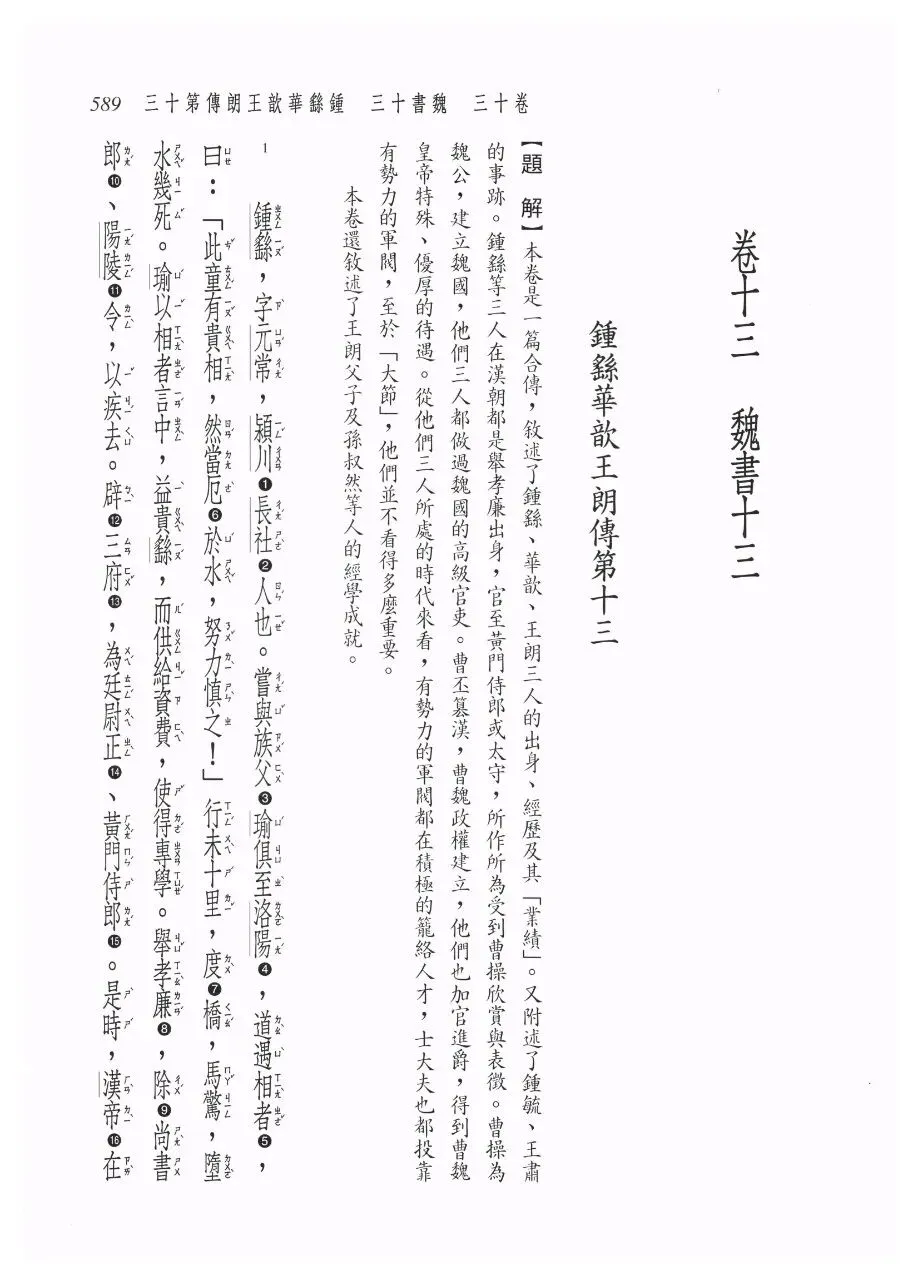 卷十三　魏書十三　鍾繇華歆王朗傳第十三　589
卷十三　魏書十三
鍾繇華歆王朗傳第十三
【題　解】本卷是一篇合傳，敘述了鍾繇、華歆、王朗三人的出身、經歷及其「業績」。又附述了鍾毓、王肅
的事跡。鍾繇等三人在漢朝都是舉孝廉出身，官至黃門侍郎或太守，所作所為受到曹操欣賞與表徵。曹操為
魏公，建立魏國，他們三人都做過魏國的高級官吏。曹丕篡漢，曹魏政權建立，他們也加官進爵，得到曹魏
皇帝特殊、優厚的待遇。從他們三人所處的時代來看，有勢力的軍閥都在積極的籠絡人才，士大夫也都投靠
有勢力的軍閥，至於「大節」，他們並不看得多麼重要。
本卷還敘述了王朗父子及孫叔然等人的經學成就。
1　鍾繇，字元常，潁川❶長社❷人也。嘗與族父❸瑜俱至洛陽❹，道遇相者❺，
曰：「此童有貴相，然當厄❻於水，努力慎之！」行未十里，度❼橋，馬驚，墮
水幾死。瑜以相者言中，益貴繇，而供給資費，使得專學。舉孝廉❽，除❾尚書
郎❿、陽陵⓫令，以疾去。辟⓬三府⓭，為廷尉正⓮、黃門侍郎⓯。是時，漢帝⓰在